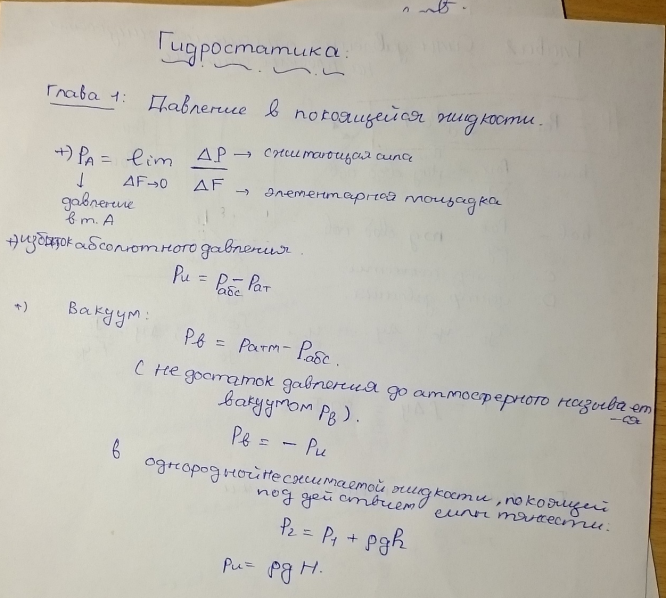 Гидростатика:
Глава 1: Давление в покоящейся жидкости.
+) PA = lim ΔP/ΔF → сжимающая сила
ΔF→0 → элементарной площадка
↓
давление
в т. А
+) избыток абсолютного давления.
Pи = Pабс - Pат
+) Вакуум:
Pв = Pатм - Pабс.
(недостаток давления до аттосферного называет
-ся
вакуумом Pв).
Pв = - Pи
в однородной несжимаемой жидкости, покоящей
под действием силы тяжести:
P2 = P1 + ρgh
Pи = ρgH.